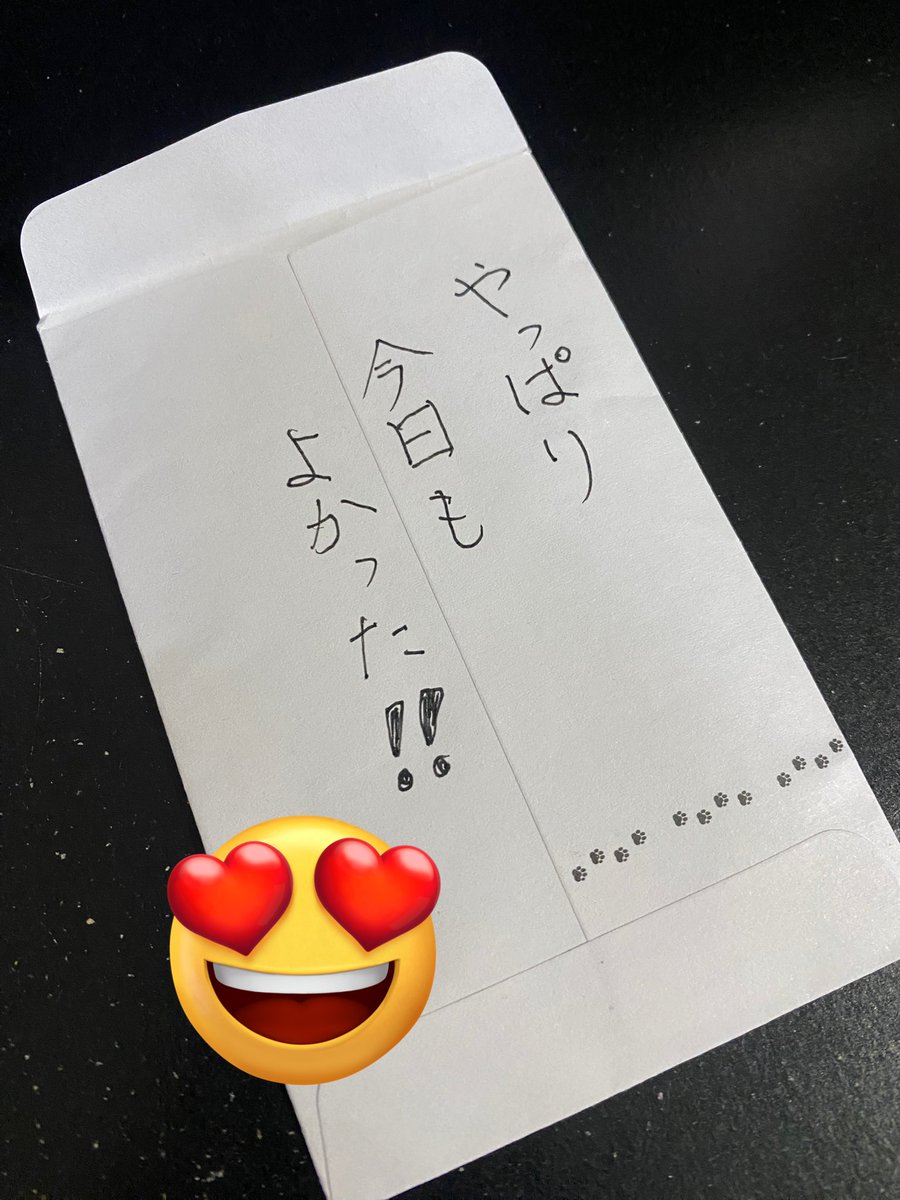 やっぱり
今日も
よかった!!